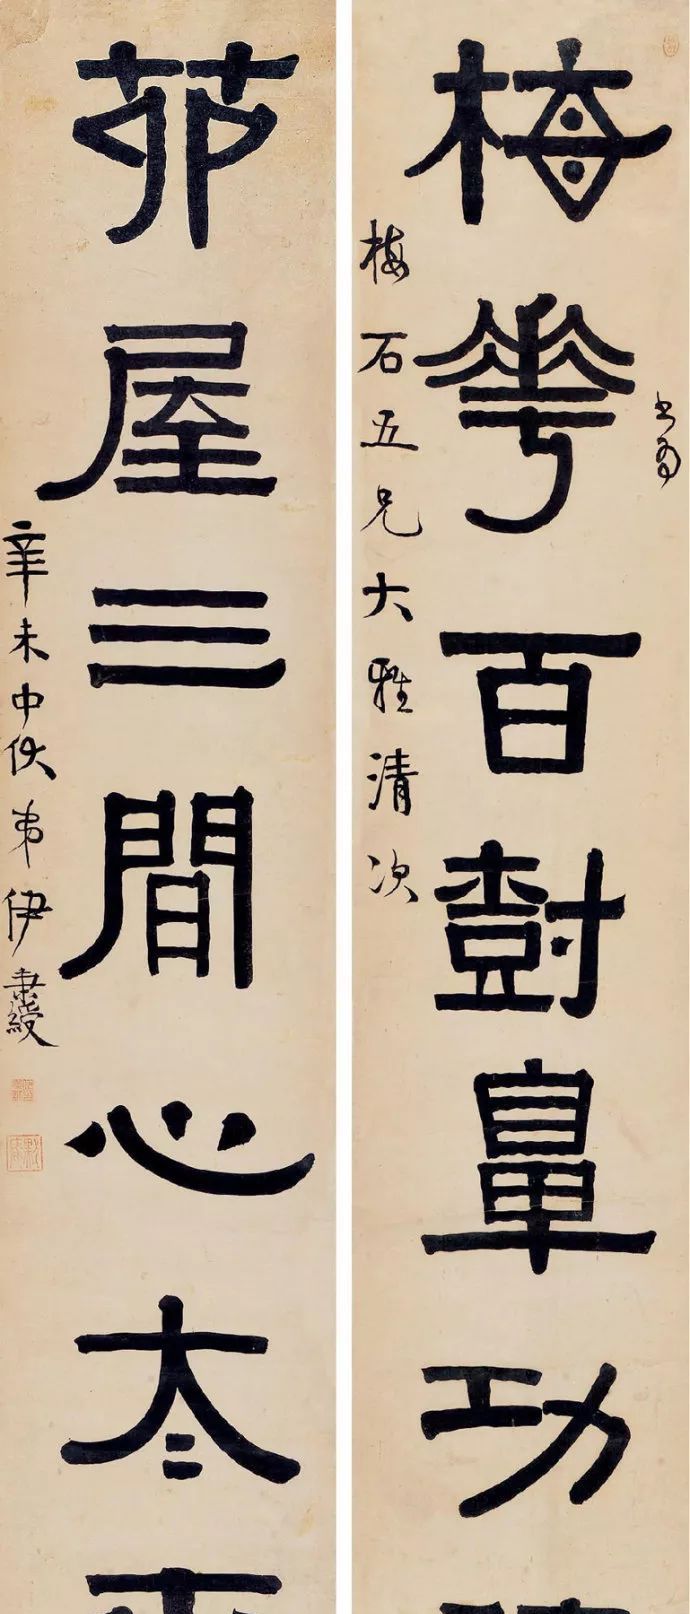 書為
梅華百樹鼻功
梅石五兄大雅清次
茆屋三間心太
辛未中伏弟伊秉綬